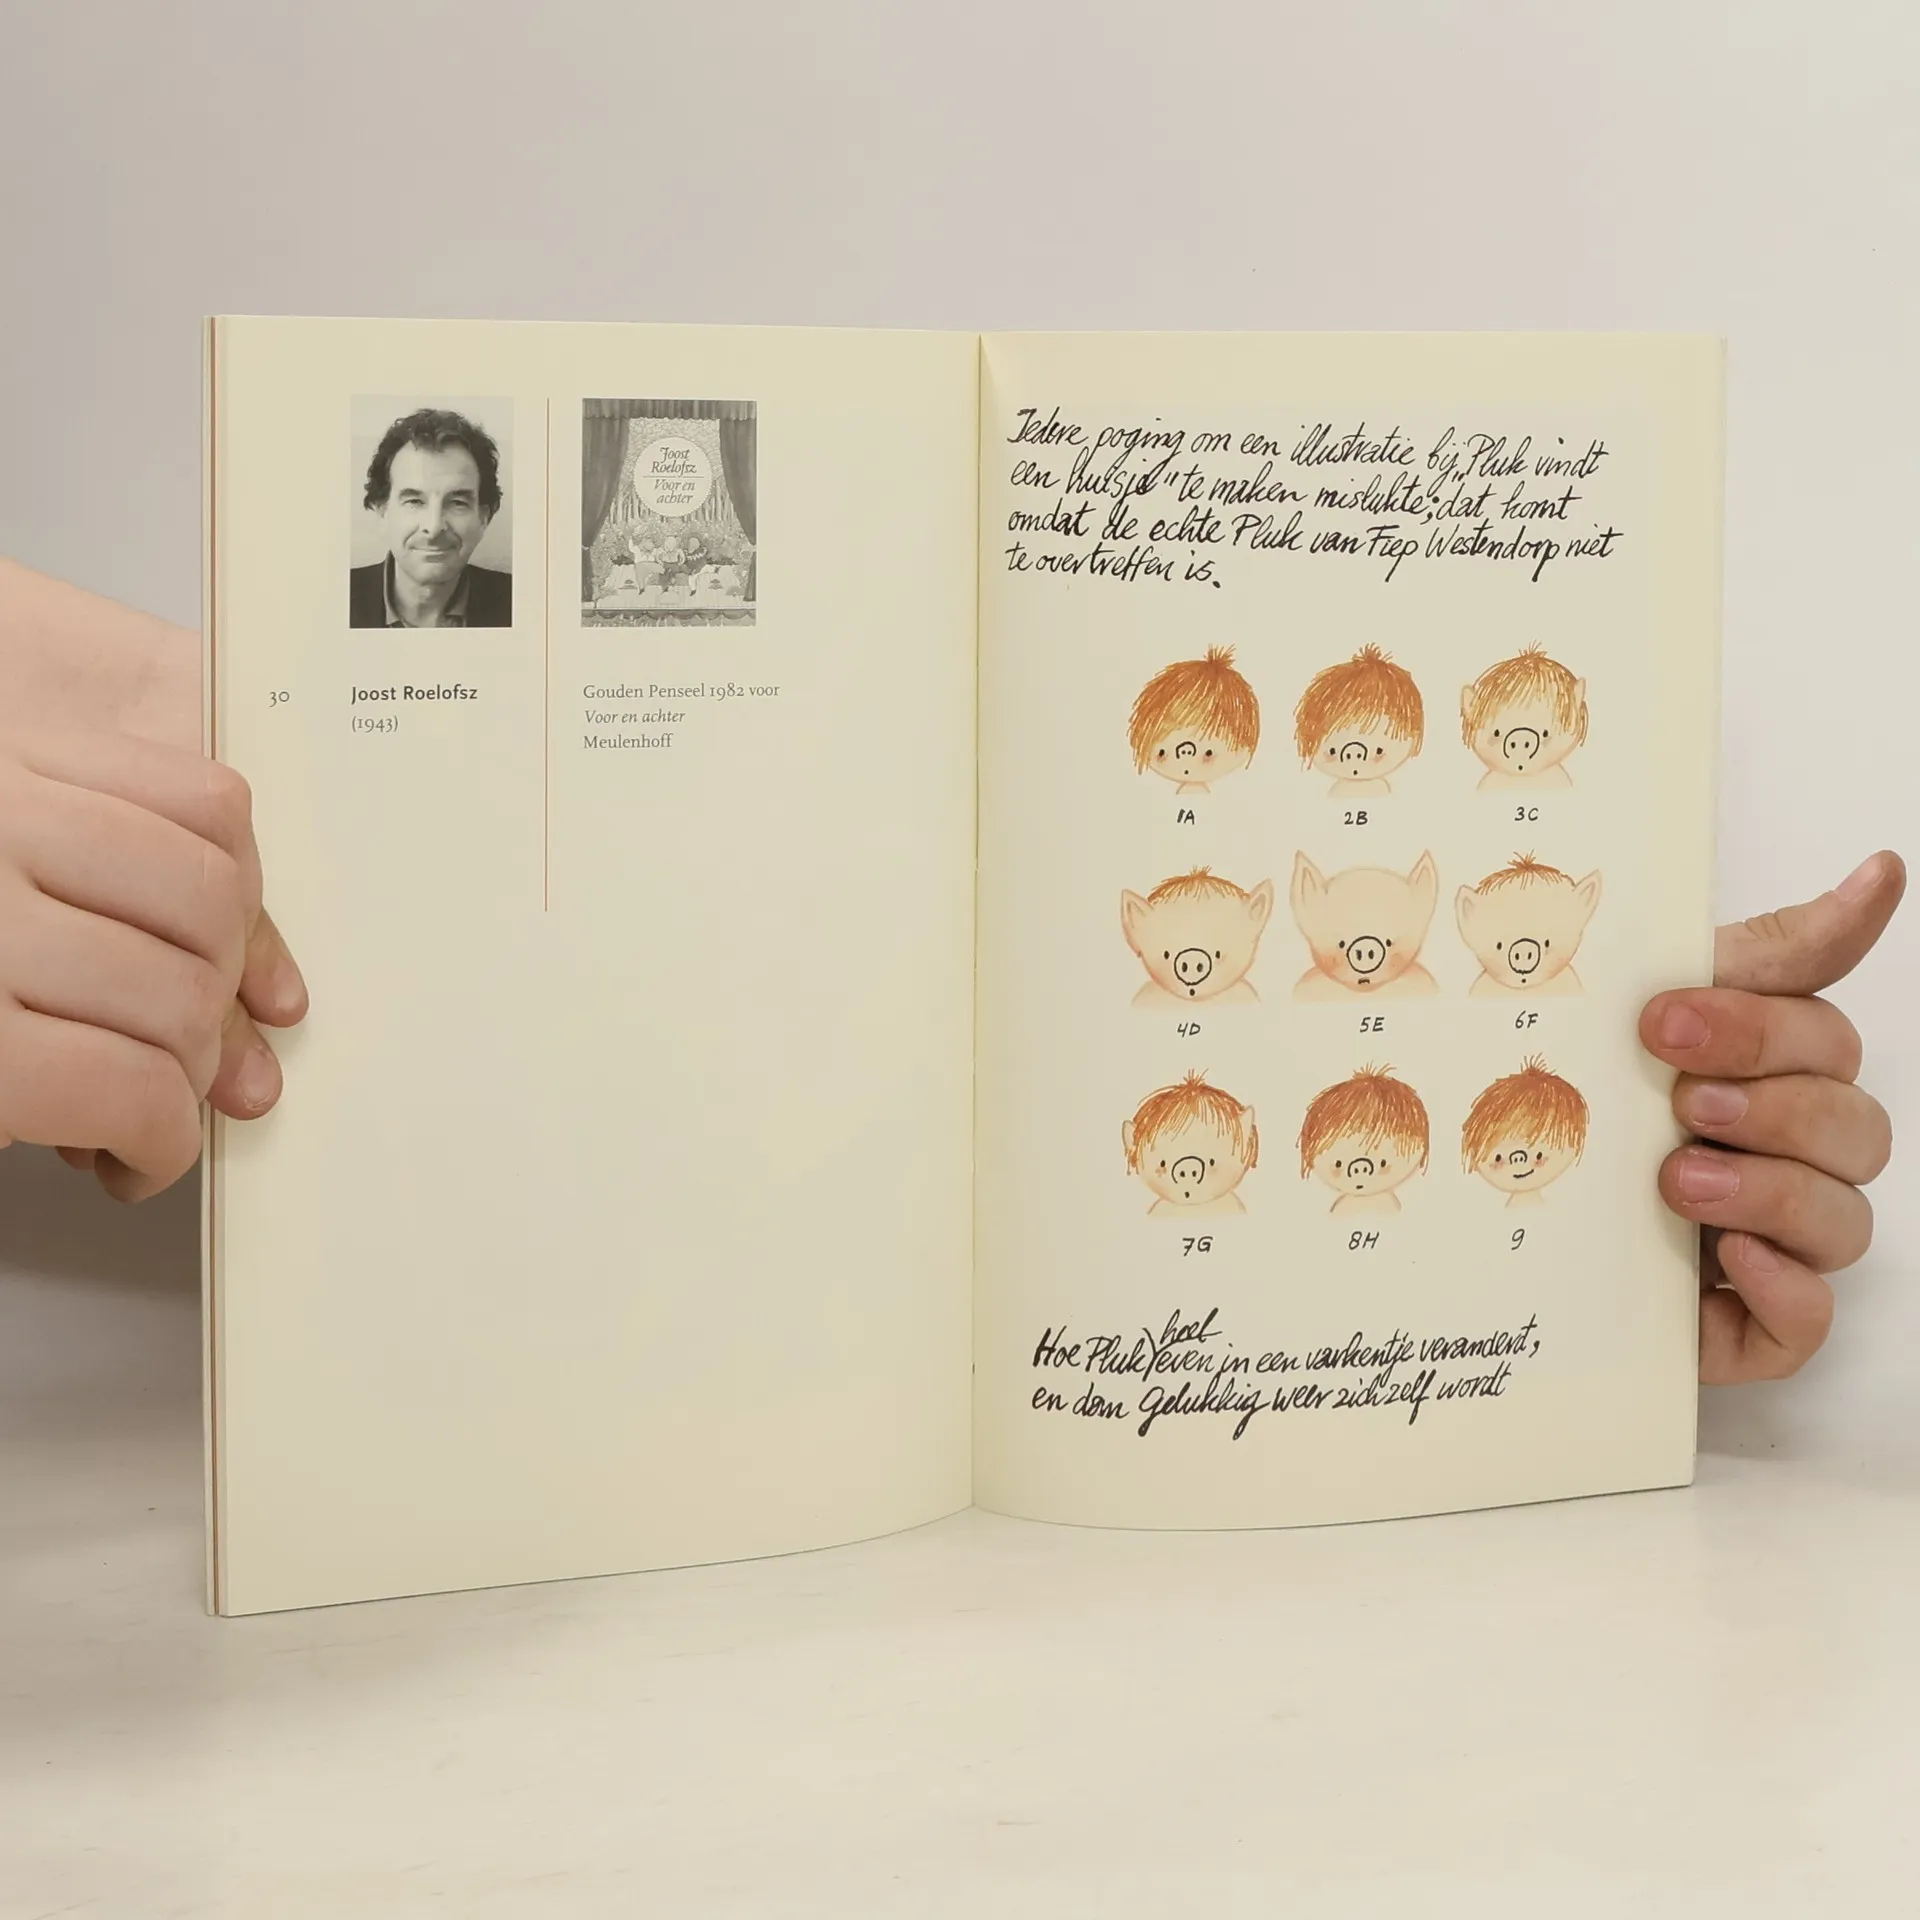 Joost
Roelofsz
Voor en
achter
30
Joost Roelofsz
(1943)
Gouden Penseel 1982 voor
Voor en achter
Meulenhoff
Iedere poging om een illustratie bij „Pluk vindt
een huisje" te maken mislukte; dat komt
omdat de echte Pluk van Fiep Westendorp niet
te overtreffen is.
1A
2B
3C
4D
5E
6F
7G
8H
9
heel
Hoe Pluk) even in een varkentje verandert,
en dan gelukkig weer zichzelf wordt